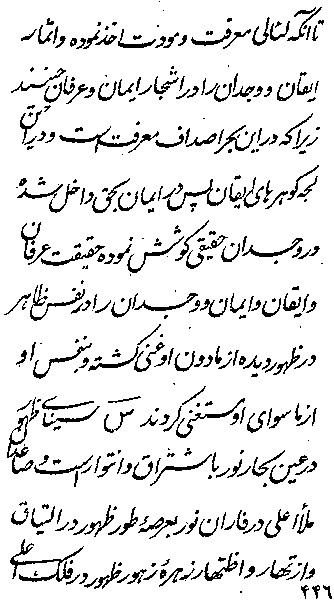 تا آنکه لئالی معرفت و مودت اخذ نموده و اثمار
ایقان و وجدان را در اشجار ایمان و عرفان چینند
زیرا که در این بحر اصداف معرفت است و در این
لجه گوهرهای ایقان پس در ایمان بحق داخل شده
و در وجدان حقیقی کوشش نموده حقیقت عرفان
و ایقان و ایمان و وجدان را در نفس ظاهر
در ظهور دیده از مادون او غنی گشته و بنفس او
از ماسوای او مستغنی گردند س سینای ظهور
در عین بحار نور باشراق و انتوار است و
ملأ اعلی در فاران نور بعرصهٔ طور ظهور در التیاق
و ازتهار و اظتهار زهرهٔ زهور ظهور در فلک اعلی
۴۴۶